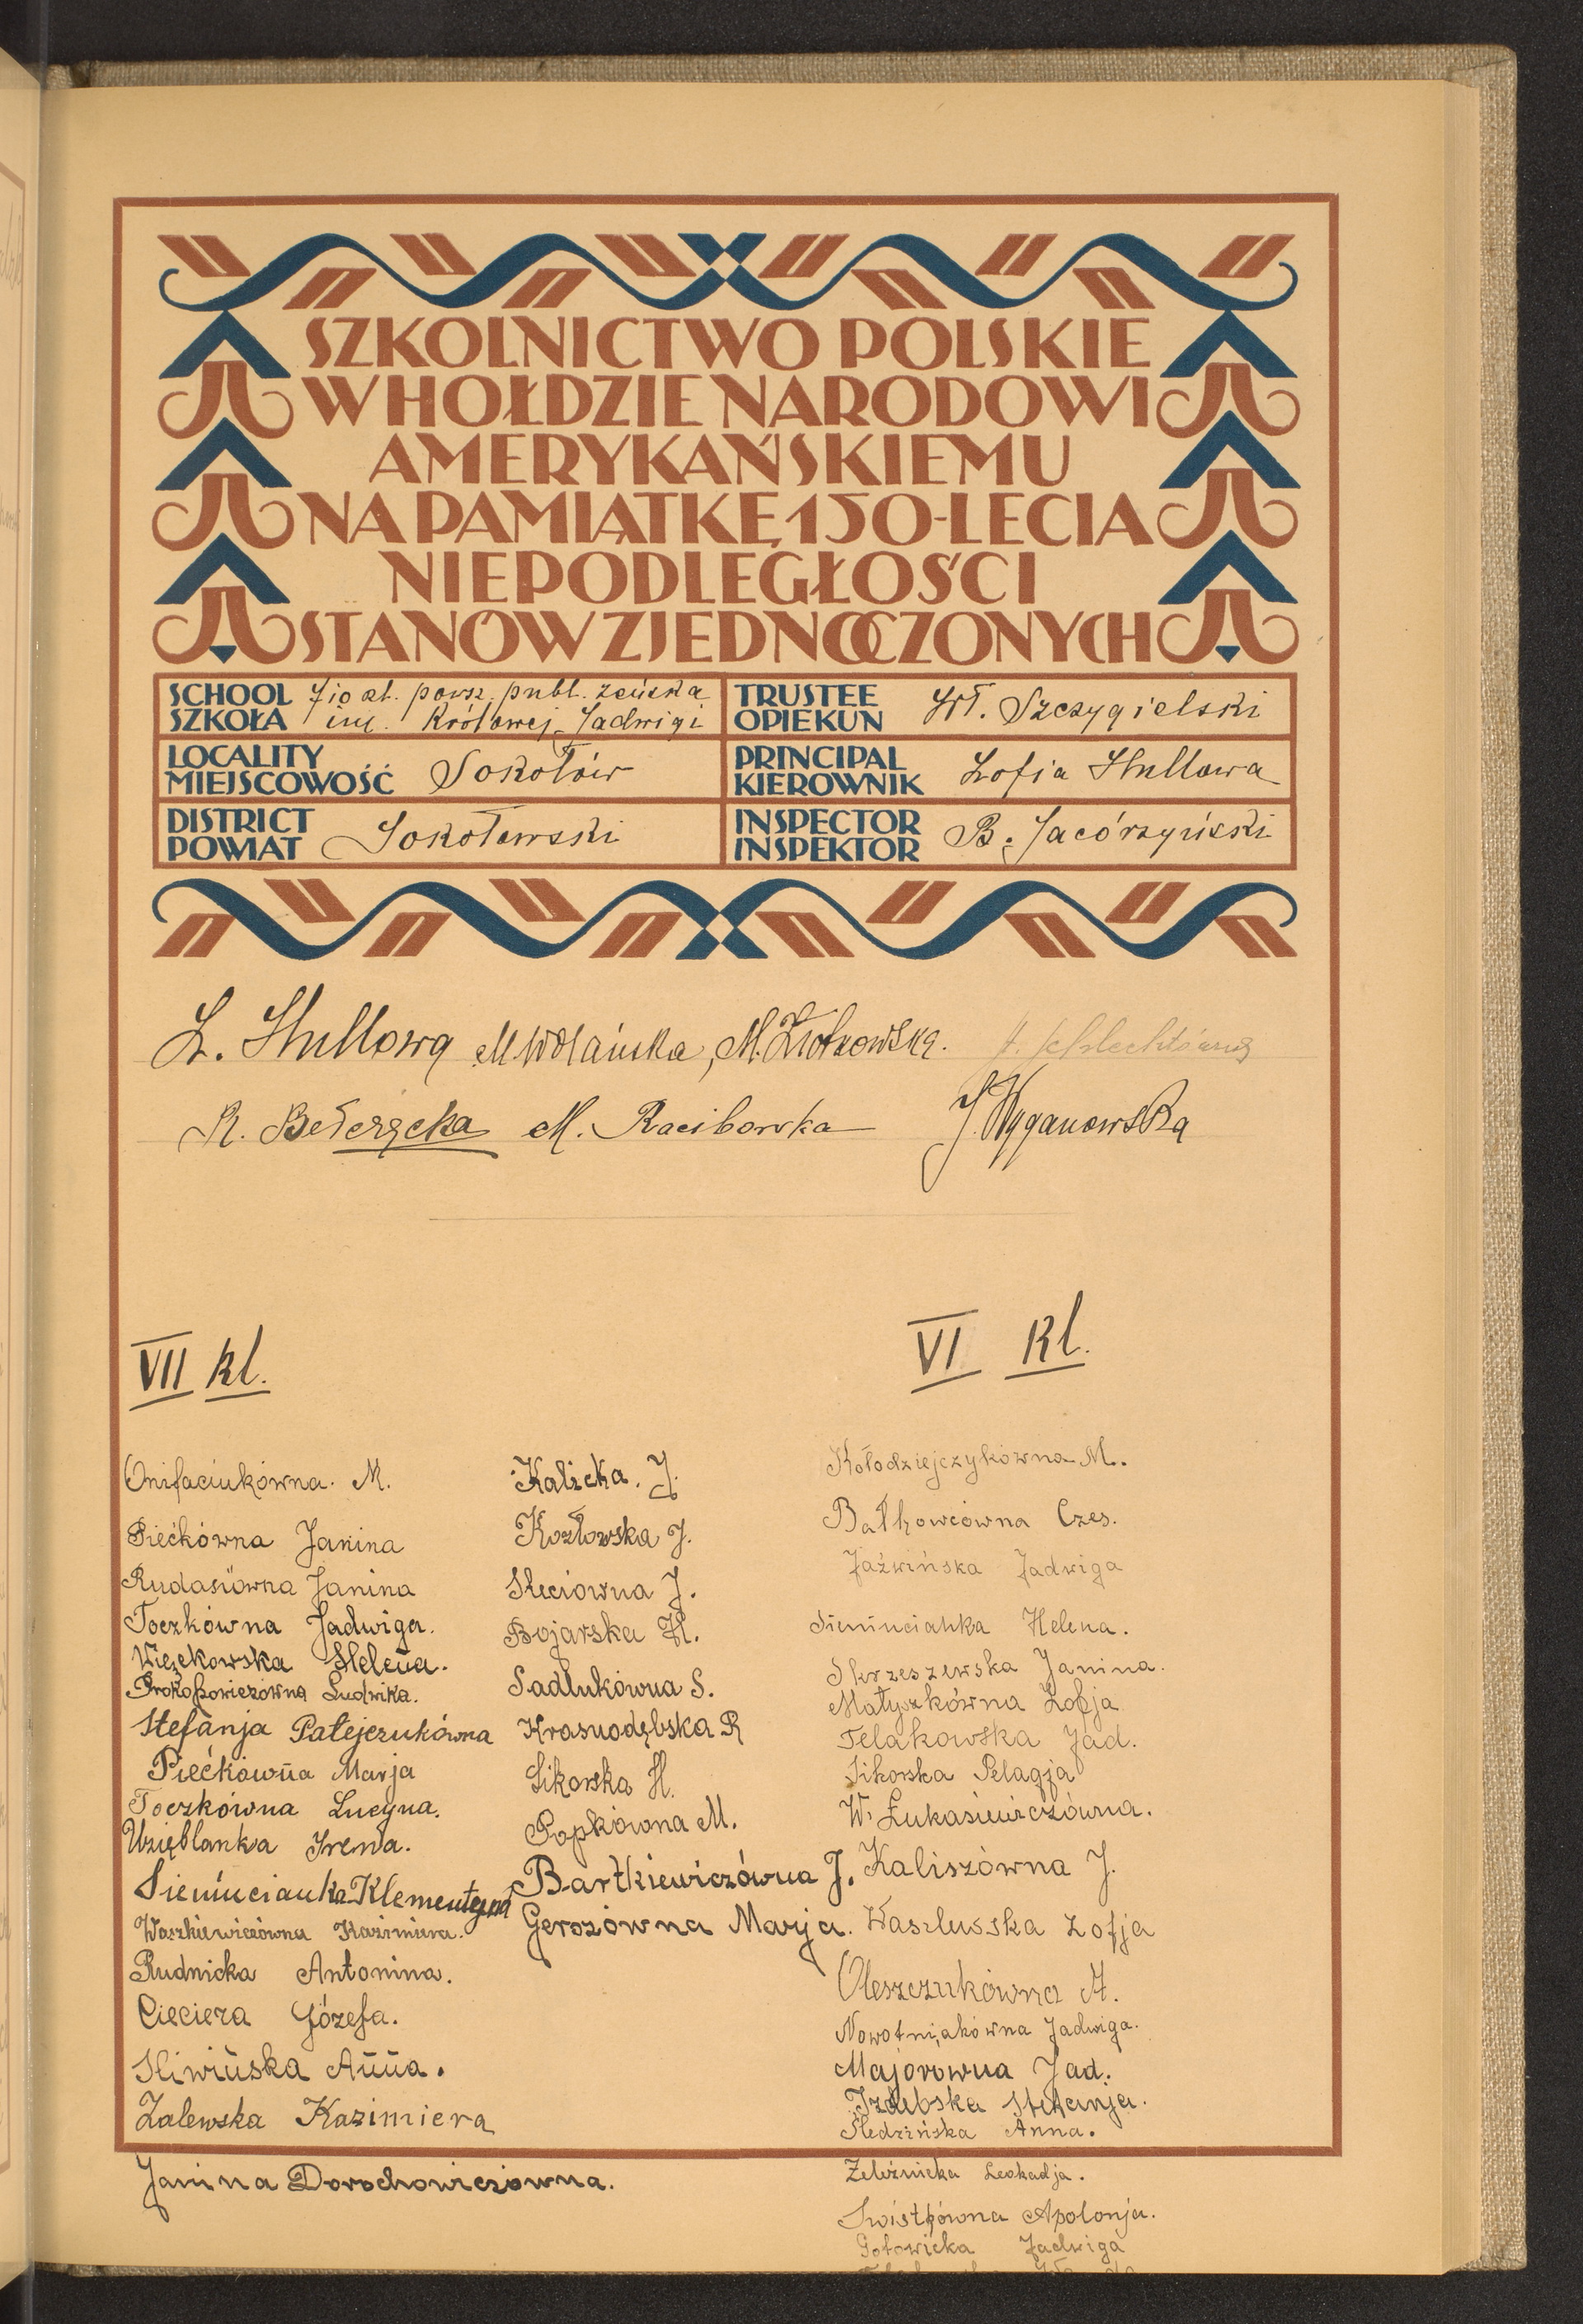 SZKOLNICTWO POLSKIE
W HOŁDZIE NARODOWI
AMERYKAŃSKIEMU
NA PAMIĄTKĘ 150-LECIA
NIEPODLEGŁOŚCI
STANÓW ZJEDNOCZONYCH
SCHOOL
SZKOŁA
7io kl. powsz. publ. żeńska
im. Królowej Jadwigi
TRUSTEE
OPIEKUN
Wł. Szczygielski
LOCALITY
MIEJSCOWOŚĆ
Sokołów
PRINCIPAL
KIEROWNIK
Zofia Hullowa
DISTRICT
POWIAT
Sokołowski
INSPECTOR
INSPEKTOR
B. Jacórzyński
Z. Hullowa M Wolańska, M. Ziołkowska.
R. Bełczącka M. Raciborska J. Wyganowska
VII kl.
Onifaciukówna. M.
Piećkówna Janina
Rudasiówna Janina
Toczkówna Jadwiga.
Więzkowska Helena.
Prokopowiczówna Ludwika.
Stefanja Patejczukówna
Piećkówna Marja
Toczkówna Lucyna.
Wzięblanka Irena.
Sieńuciauka Klementyna
Waszkiewiczówna Kazimiera.
Rudnicka Antonina.
Cieciera Józefa.
Sliwińska Anna.
Zalewska Kazimiera
Janina Dorochowiczówna.
Kalicka. J.
Kozłowska J.
Steciówna J.
Bojarska H.
Sadlukówna S.
Krasnodębska R
Sikorska H.
Popkówna M.
Bartkiewiczówna J.
Gerszówna Marja.
VI kl.
Kołodziejczykówna M..
Bałkowcówna Czes.
Jaźwińska Jadwiga
Helena.
Skrzeszewska Janina.
Małyszkówna Zofja
Telakowska Jad.
Sikorska Pelagja
W. Łukasiewiczówna.
Kaliszówna J.
Zofja
Oleszczukówna A.
Nowotniakówna Jadwiga.
Majorowna Jad.
Izdebska Stefanja.
Śledzińska Anna.
Żeleźnicka Leokadja.
Swistkówna Apolonja.
Gotowicka Jadwiga